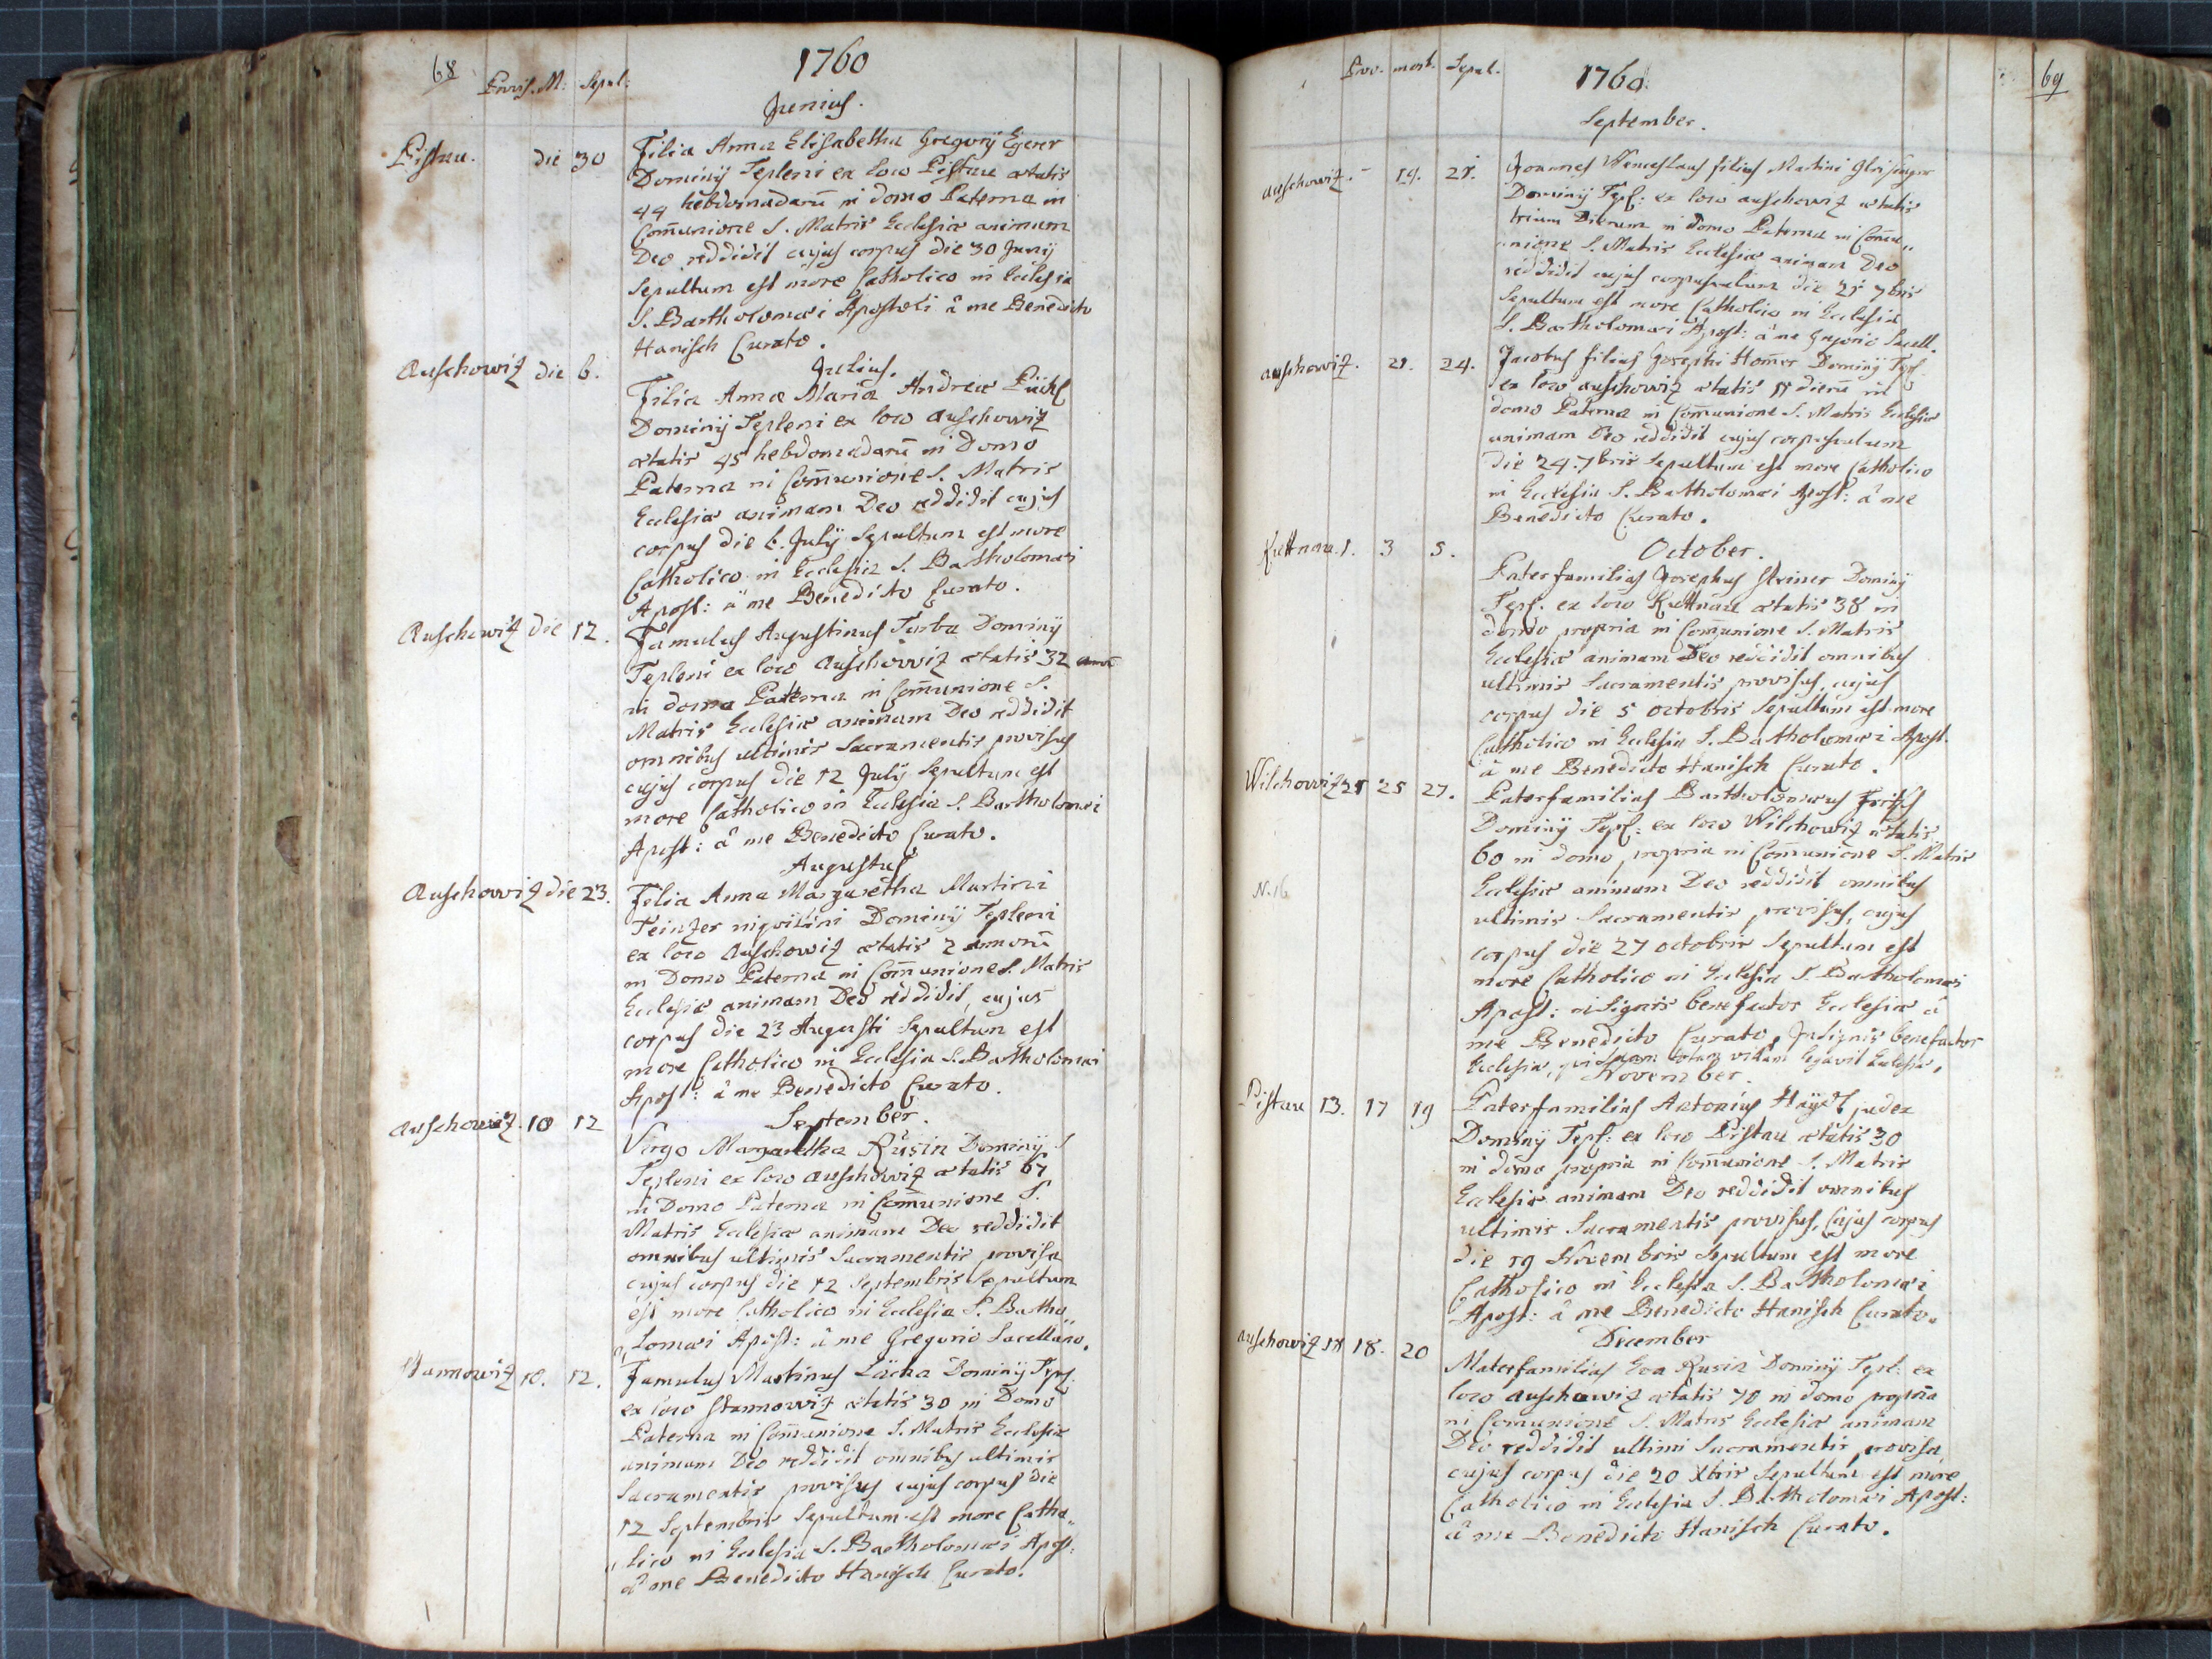 68
Provis. M: Sepul:
1760
Junius.
Pistau. die 30
Filia Anna Elisabetha Gregorij Egerer
Dominij Tepleni ex loco Pistau ætatis
44 hebdomadarū in domo Paterna in
Com̄unione S. Matris Ecclesiæ animam
Deo reddidit cujus corpus die 30 Junij
Sepultum est more Catholico in Ecclesia
S. Bartholomæi Apostoli â me Benedicto
Hanisch Curato.
Julius.
Auschowitz die 6.
Filia Anna Maria Andreæ
Dominij Tepleni ex loco Auschowitz
ætatis 45 hebdomadarū in Domo
Paterna in Com̄unione S. Matris
Ecclesiæ animam Deo reddidit cujus
corpus die 6. Julij Sepultum est more
Catholico in Ecclesia S. Bartholomæi
Apost: â me Benedicto Curato.
Auschowitz die 12.
Famulus Augustinus Turba Dominij
Tepleni ex loco Auschowitz ætatis 32
in domo Paterna in Com̄unione S.
Matris Ecclesiæ animam Deo reddidit
omnibus ultimis Sacramentis provisus
cujus corpus die 12 Julij Sepultum est
more Catholico in Ecclesia S. Bartholomæi
Apost: â me Benedicto Curato.
Augustus
Auschowitz die 23.
Filia Anna Margaretha Martini
inquilini Dominij Tepleni
ex loco Auschowitz ætatis 2 annorū
in Domo Paterna in Com̄unione S. Matris
Ecclesiæ animam Deo reddidit, cujus
corpus die 23 Augusti Sepultum est
more Catholico in Ecclesia S. Bartholomæi
Apost: â me Benedicto Curato.
September.
Auschowitz. 10 12
Virgo Margaretha Rusin Dominij
Tepleni ex loco Auschowitz ætatis 67
in Domo Paterna in Com̄unione S.
Matris Ecclesiæ animam Deo reddidit
omnibus ultimis Sacramentis provisa
cujus corpus die 12 Septembris Sepultum
est more Catholico in Ecclesia S. Bartho„
„lomæi Apost: â me Gregorio Sacellano.
Stannowitz 10. 12.
Famulus Martinus Lächa Dominij Tepl.
ex loco Stannowitz ætatis 30 in Domo
Paterna in Com̄unione S. Matris Ecclesiæ
animam Deo reddidit omnibus ultimis
Sacramentis provisus cujus corpus die
12 Septembris Sepultum est more Catho„
„lico in Ecclesia S. Bartholomæi Apost:
â me Benedicto Hanisch Curato.
69
Pro. mort. Sepul.
1760.
September.
Auschowitz. - 19. 21.
Joannes Wenceslaus filius Martini
Dominij Tepl: ex loco Auschowitz ætatis
trium Dierum in domo Paterna in Com̄u„
„nione S. Matris Ecclesiæ animam Deo
reddidit cujus corpusculum die 21 7bris
Sepultum est more Catholico in Ecclesia
S. Bartholomæi Apost: â me Gregorio Sacell.
Auschowitz. 21. 24.
Jacobus filius Josephi Dominij Tepl.
ex loco Auschowitz ætatis dierū in
domo Paterna in Com̄unione S. Matris Ecclesiæ
animam Deo reddidit cujus corpusculum
die 24. 7bris Sepultum est more Catholico
in Ecclesia S. Bartholomæi Apost: â me
Benedicto Curato.
October.
Kuttnau. 1. 3 5.
Paterfamilias Josephus Steiner Dominij
Tepl. ex loco Kuttnau ætatis 38 in
domo propria in Com̄unione S. Matris
Ecclesiæ animam Deo reddidit omnibus
ultimis Sacramentis provisus, cujus
corpus die 5 Octobris Sepultum est more
Catholico in Ecclesia S. Bartholomæi Apost.
â me Benedicto Hanisch Curato.
Wilchowitz 25 27.
Paterfamilias Bartholomæus
Dominij Tepl: ex loco Wilchowitz ætatis
60 in domo propria in Com̄unione S. Matris
N. 16
Ecclesiæ animam Deo reddidit omnibus
ultimis Sacramentis provisus, cujus
corpus die 27 octobris Sepultum est
more Catholico in Ecclesia S. Bartholomæi
Apost: insignis benefactor Ecclesiæ â
me Benedicto Curato, Insignis benefactor
Ecclesiæ, qui legavit Ecclesiæ.
November.
Pistau 13. 17 19
Paterfamilias Antonius judex
Dominij Tepl: ex loco Pistau ætatis 30
in domo propria in Com̄unione S. Matris
Ecclesiæ animam Deo reddidit omnibus
ultimis Sacramentis provisus, Cujus corpus
die 19 Novembris Sepultum est more
Catholico in Ecclesia S. Bartholomæi
Apost: â me Benedicto Hanisch Curato.
December
Auschowitz 18. 20
Materfamilias Eva Rusin Dominij Tepl: ex
loco Auschowitz ætatis 70 in domo propria
in Com̄unione S. Matris Ecclesiæ animam
Deo reddidit ultimi Sacramentis provisa
cujus corpus die 20 Xbris Sepultum est more
Catholico in Ecclesia S. Bartholomæi Apost:
â me Benedicto Hanisch Curato.